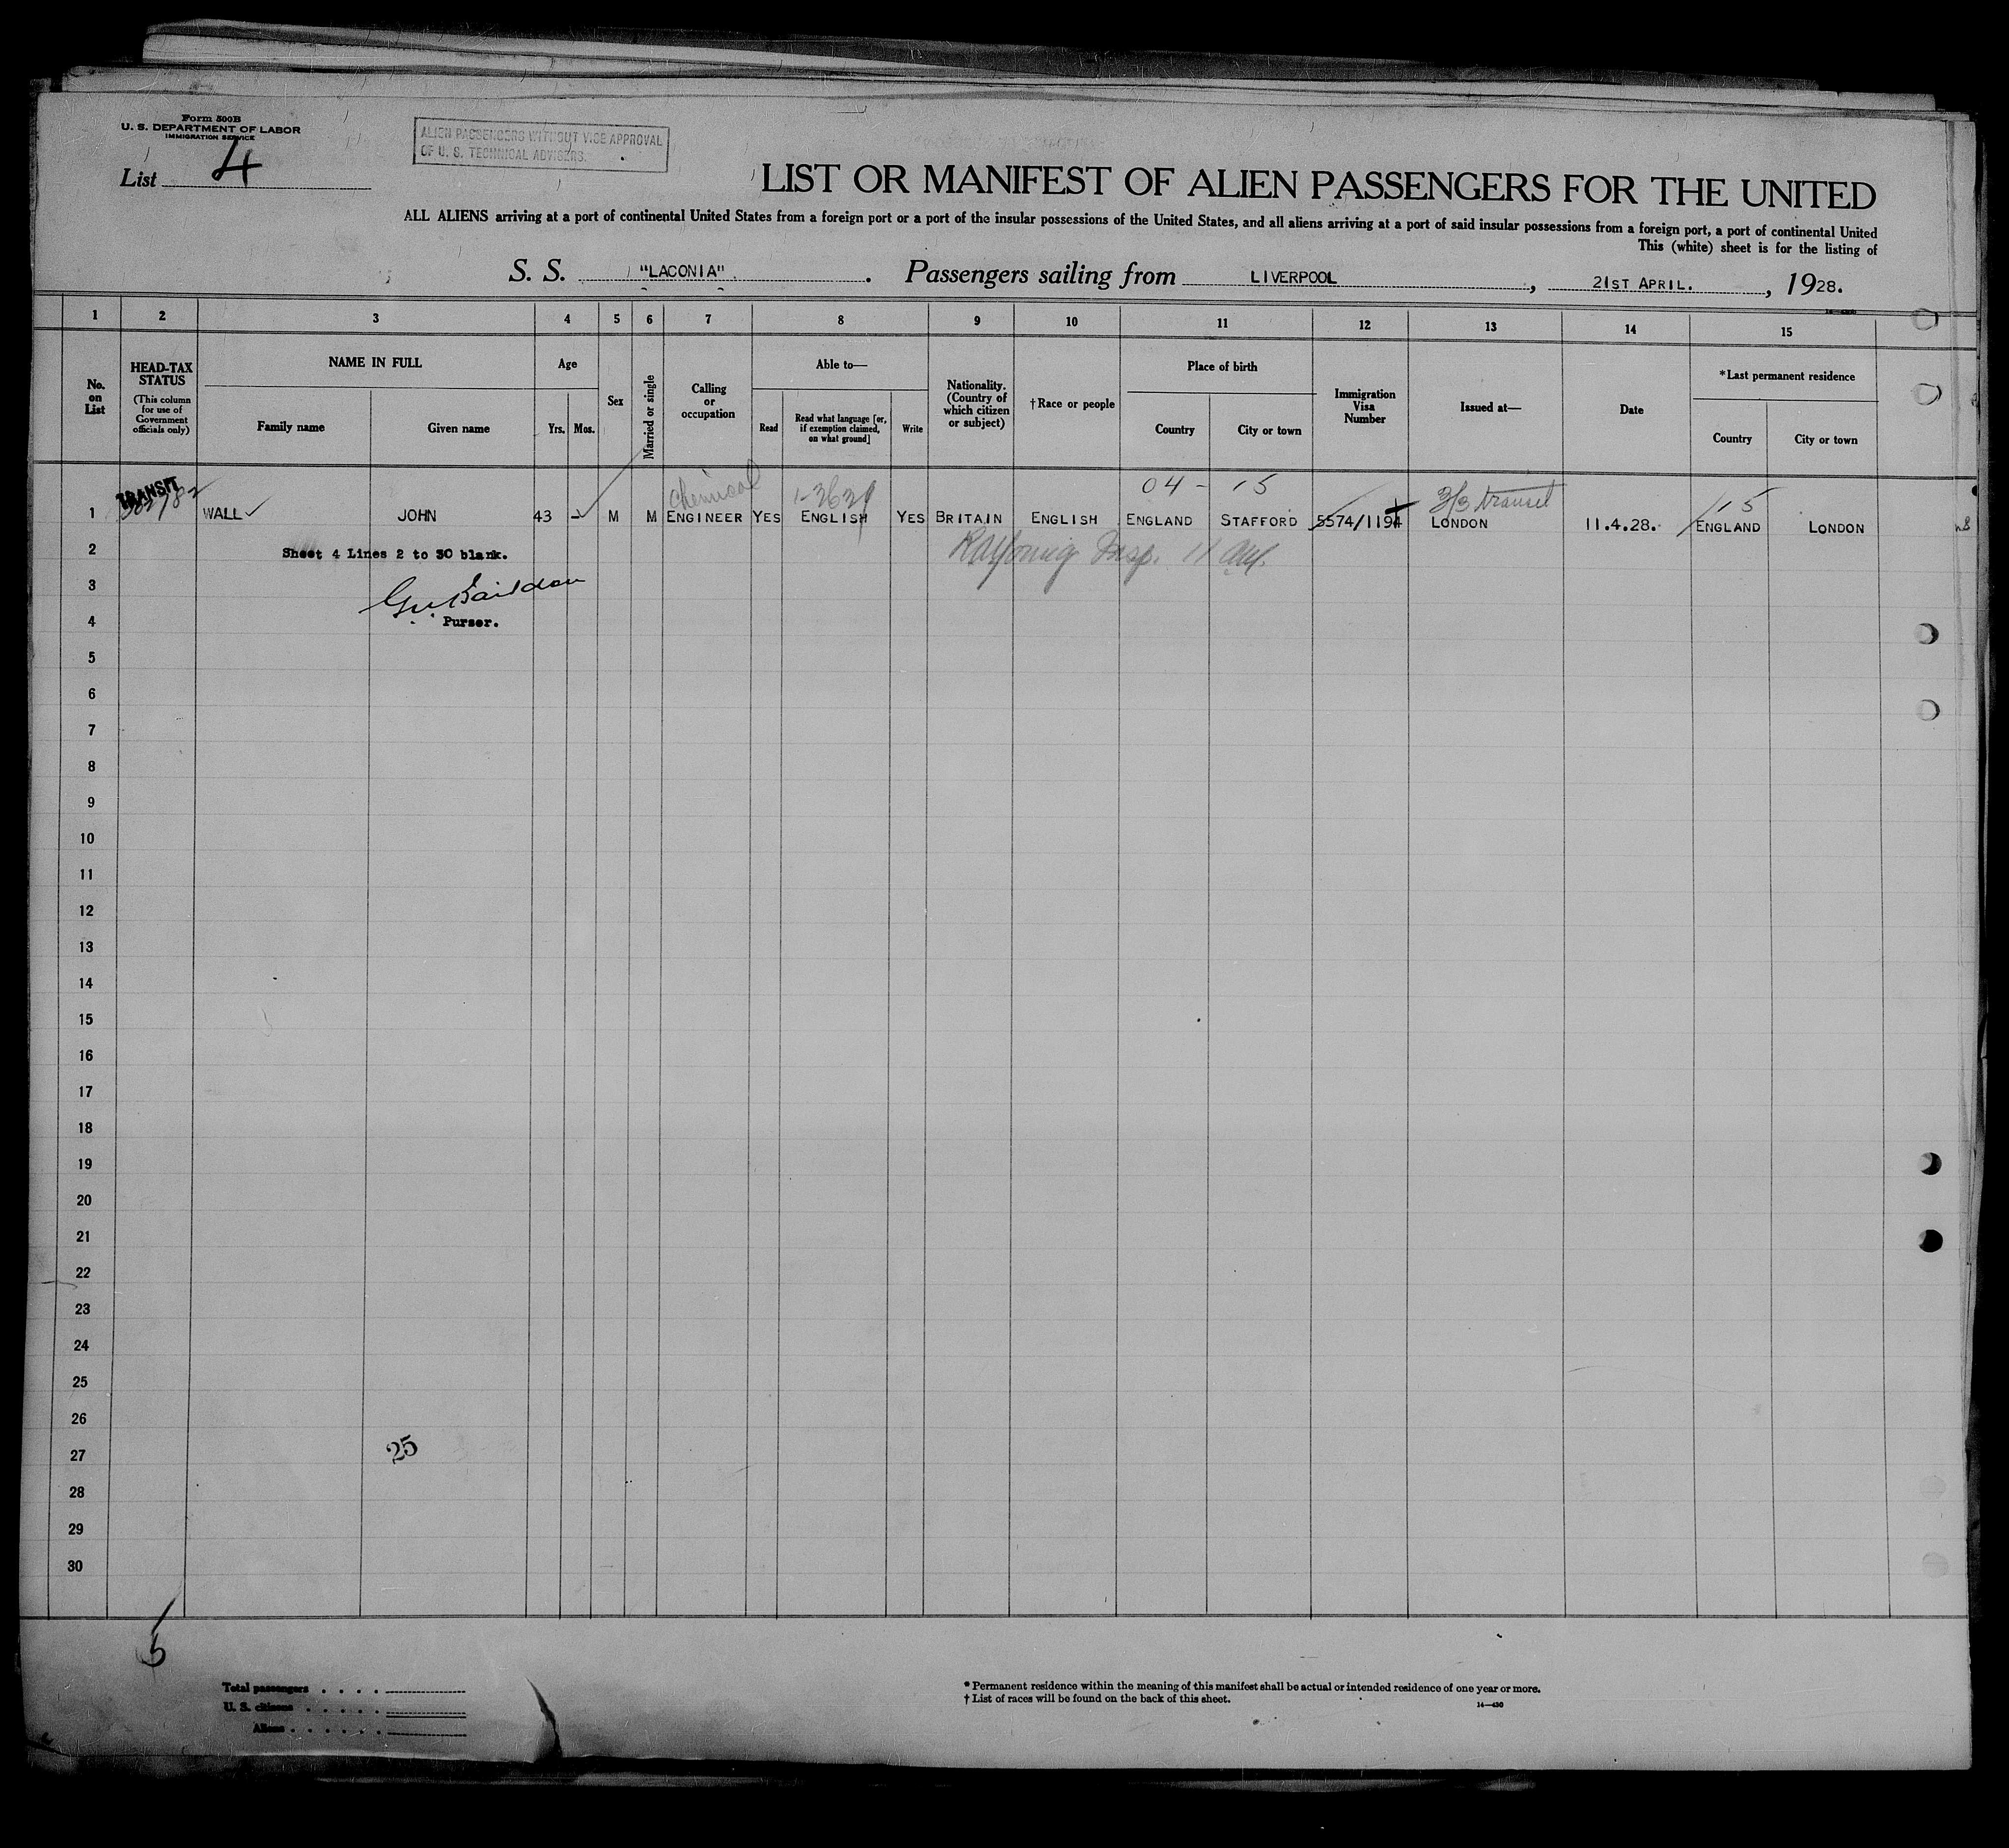 Form 500B
U. S. DEPARTMENT OF LABOR
IMMIGRATION SERVICE
List 4
ALIEN PASSENGERS WITHOUT VISE APPROVAL
OF U. S. TECHNICAL ADVISERS.
LIST OR MANIFEST OF ALIEN PASSENGERS FOR THE UNITED
ALL ALIENS arriving at a port of continental United States from a foreign port or a port of the insular possessions of the United States, and all aliens arriving at a port of said insular possessions from a foreign port, a port of continental United
This (white) sheet is for the listing of
S. S. "LACONIA". Passengers sailing from LIVERPOOL, 21ST APRIL., 1928.
1 2 3 4 5 6 7 8 9 10 11 12 13 14 15
No. on List
HEAD-TAX STATUS
(This column for use of Government officials only)
NAME IN FULL
Family name Given name
Age
Yrs. Mos.
Sex
Married or single
Calling or occupation
Able to—
Read Read what language [or, if exemption claimed, on what ground] Write
Nationality. (Country of which citizen or subject)
†Race or people
Place of birth
Country City or town
Immigration Visa Number
Issued at—
Date
*Last permanent residence
Country City or town
TRANSIT Chemical 04 - 15 3/3 transit 15
1 WALL JOHN 43 - M M ENGINEER YES ENGLISH YES BRITAIN ENGLISH ENGLAND STAFFORD 5574/1194 LONDON 11.4.28. ENGLAND LONDON
2 Sheet 4 Lines 2 to 30 blank. Insp.
3
4 Purser.
5
6
7
8
9
10
11
12
13
14
15
16
17
18
19
20
21
22
23
24
25
26
27 25
28
29
30
5
Total passengers
U. S. citizens
Aliens
* Permanent residence within the meaning of this manifest shall be actual or intended residence of one year or more.
† List of races will be found on the back of this sheet.
14—430